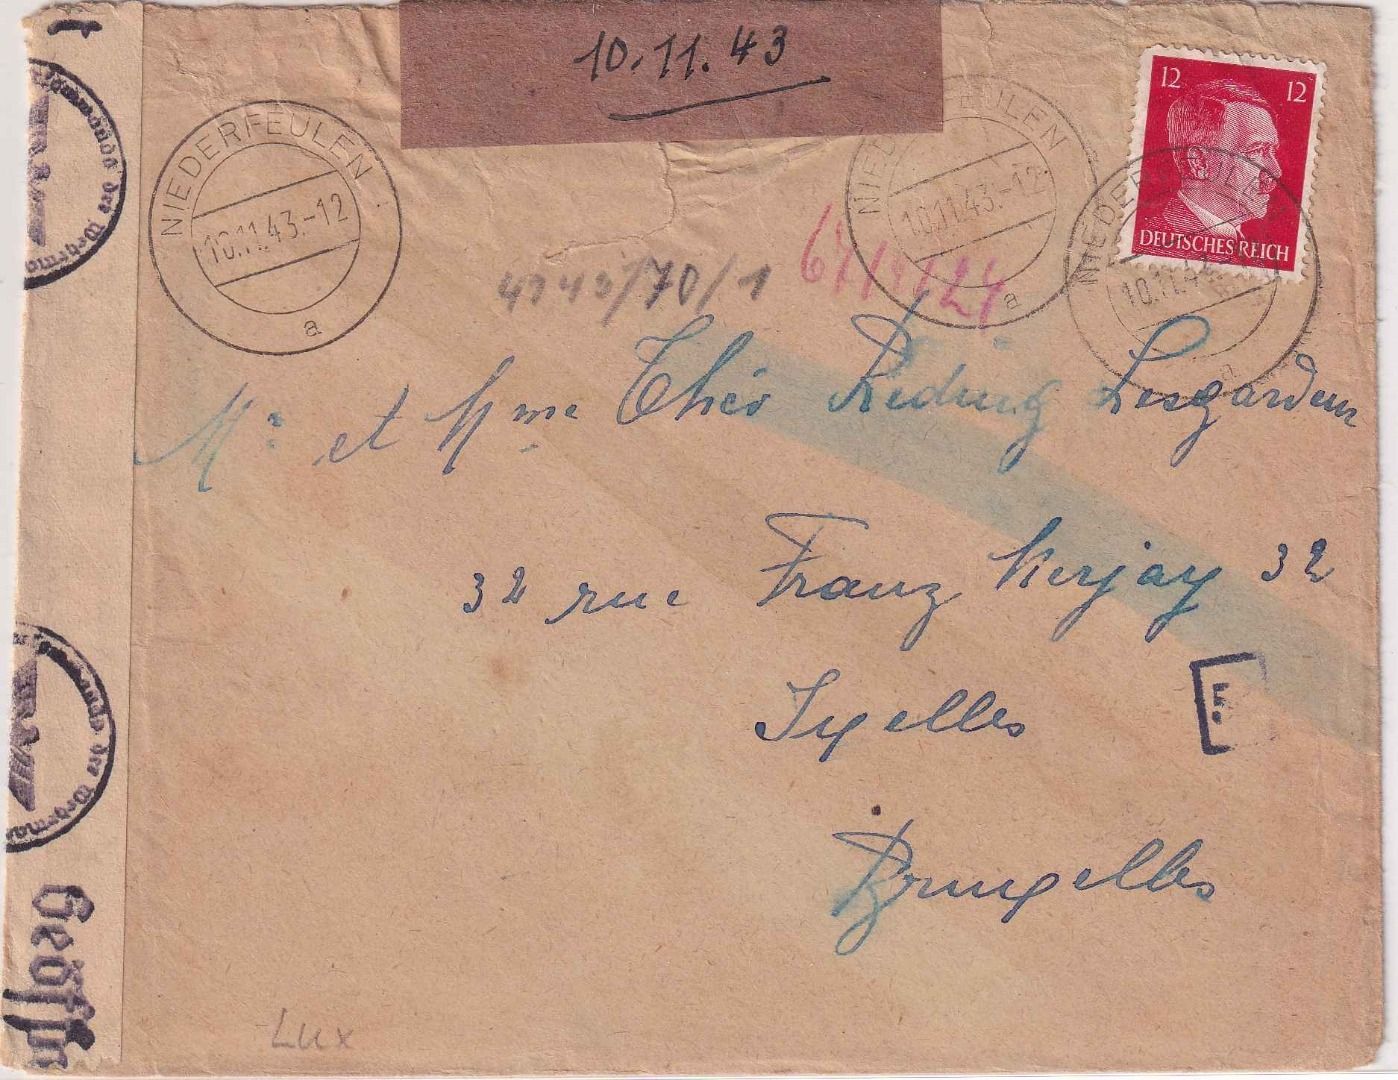 10.11.43
12 12
DEUTSCHES REICH
NIEDERFEULEN
10.11.43.-12
a
NIEDERFEULEN
10.11.43.-12
a
NIEDERFEULEN
10.11.4
a
/70/1
Mr et Mme Théo Reding Lesgardeur
32 rue Franz Merjay 32
Ixelles
Bruxelles
E.
Lux
der Wehrma
der Wehrma
Geöff